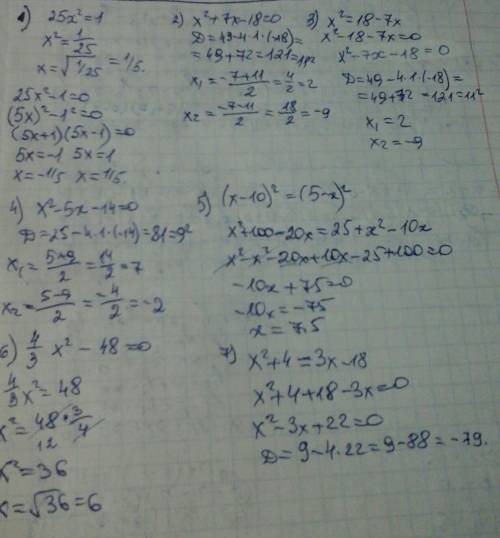 1) 25x²=1
x²=1/25
x=√1/25 = 1/5.
25x²-1=0
(5x)²-1²=0
(5x+1)(5x-1)=0
5x=-1 5x=1
x=-1/5 x=1/5.
2) x²+7x-18=0
D=49-4·1·(-18)=
=49+72=121=11²
x₁=(-7+11)/2=4/2=2
x₂=(-7-11)/2=18/2=-9
3) x²=18-7x
x²-18-7x=0
x²-7x-18=0
D=49-4·1·(-18)=
=49+72=121=11²
x₁=2
x₂=-9
4) x²-5x-14=0
D=25-4·1·(-14)=81=9²
x₁=(5+9)/2=14/2=7
x₂=(5-9)/2=-4/2=-2
5) (x-10)²=(5-x)²
x²+100-20x=25+x²-10x
x²-x²-20x+10x-25+100=0
-10x+75=0
-10x=-75
x=7,5
6) 4/3 x²-48=0
4/3 x²=48
x²=48·3/4
12
x²=36
x=√36=6
7) x²+4=3x-18
x²+4+18-3x=0
x²-3x+22=0
D=9-4·22=9-88=-79.